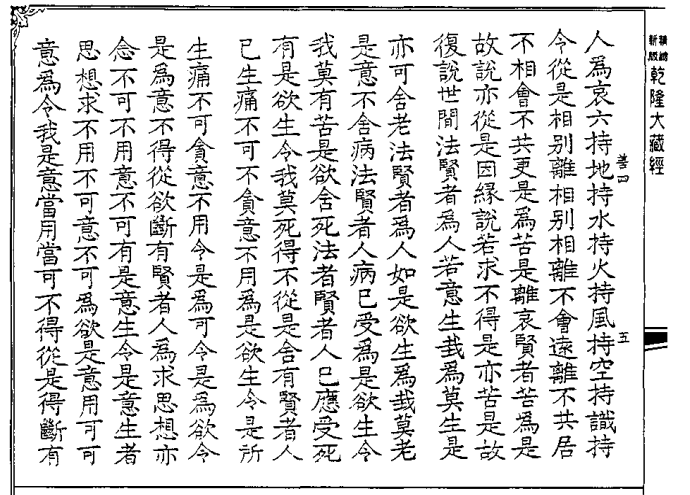 新版
乾隆大藏經
善四
五
人爲哀六持地持水持火持風持空持識持
令從是相別離相別相離不會遠離不共居
不相會不共更是爲苦是離哀賢者苦爲是
故說亦從是因緣說若求不得是亦苦是故
復說世間法賢者爲人若意生㦲爲莫生是
亦可舍老法賢者爲人如是欲生爲㦲莫老
是意不舍病法賢者人病巳受爲是欲生令
我莫有苦是欲舍死法者賢者人巳應受死
有是欲生令我莫死得不從是舍有賢者人
巳生痛不可不貪意不用爲是欲生令是所
生痛不可貪意不用令是爲可令是爲欲令
是爲意不得從欲斷有賢者人爲求思想亦
念不可不用意不可有是意生令是意生者
思想求不用不可意不可爲欲是意用可可
意爲令我是意當用當可不得從是得斷有